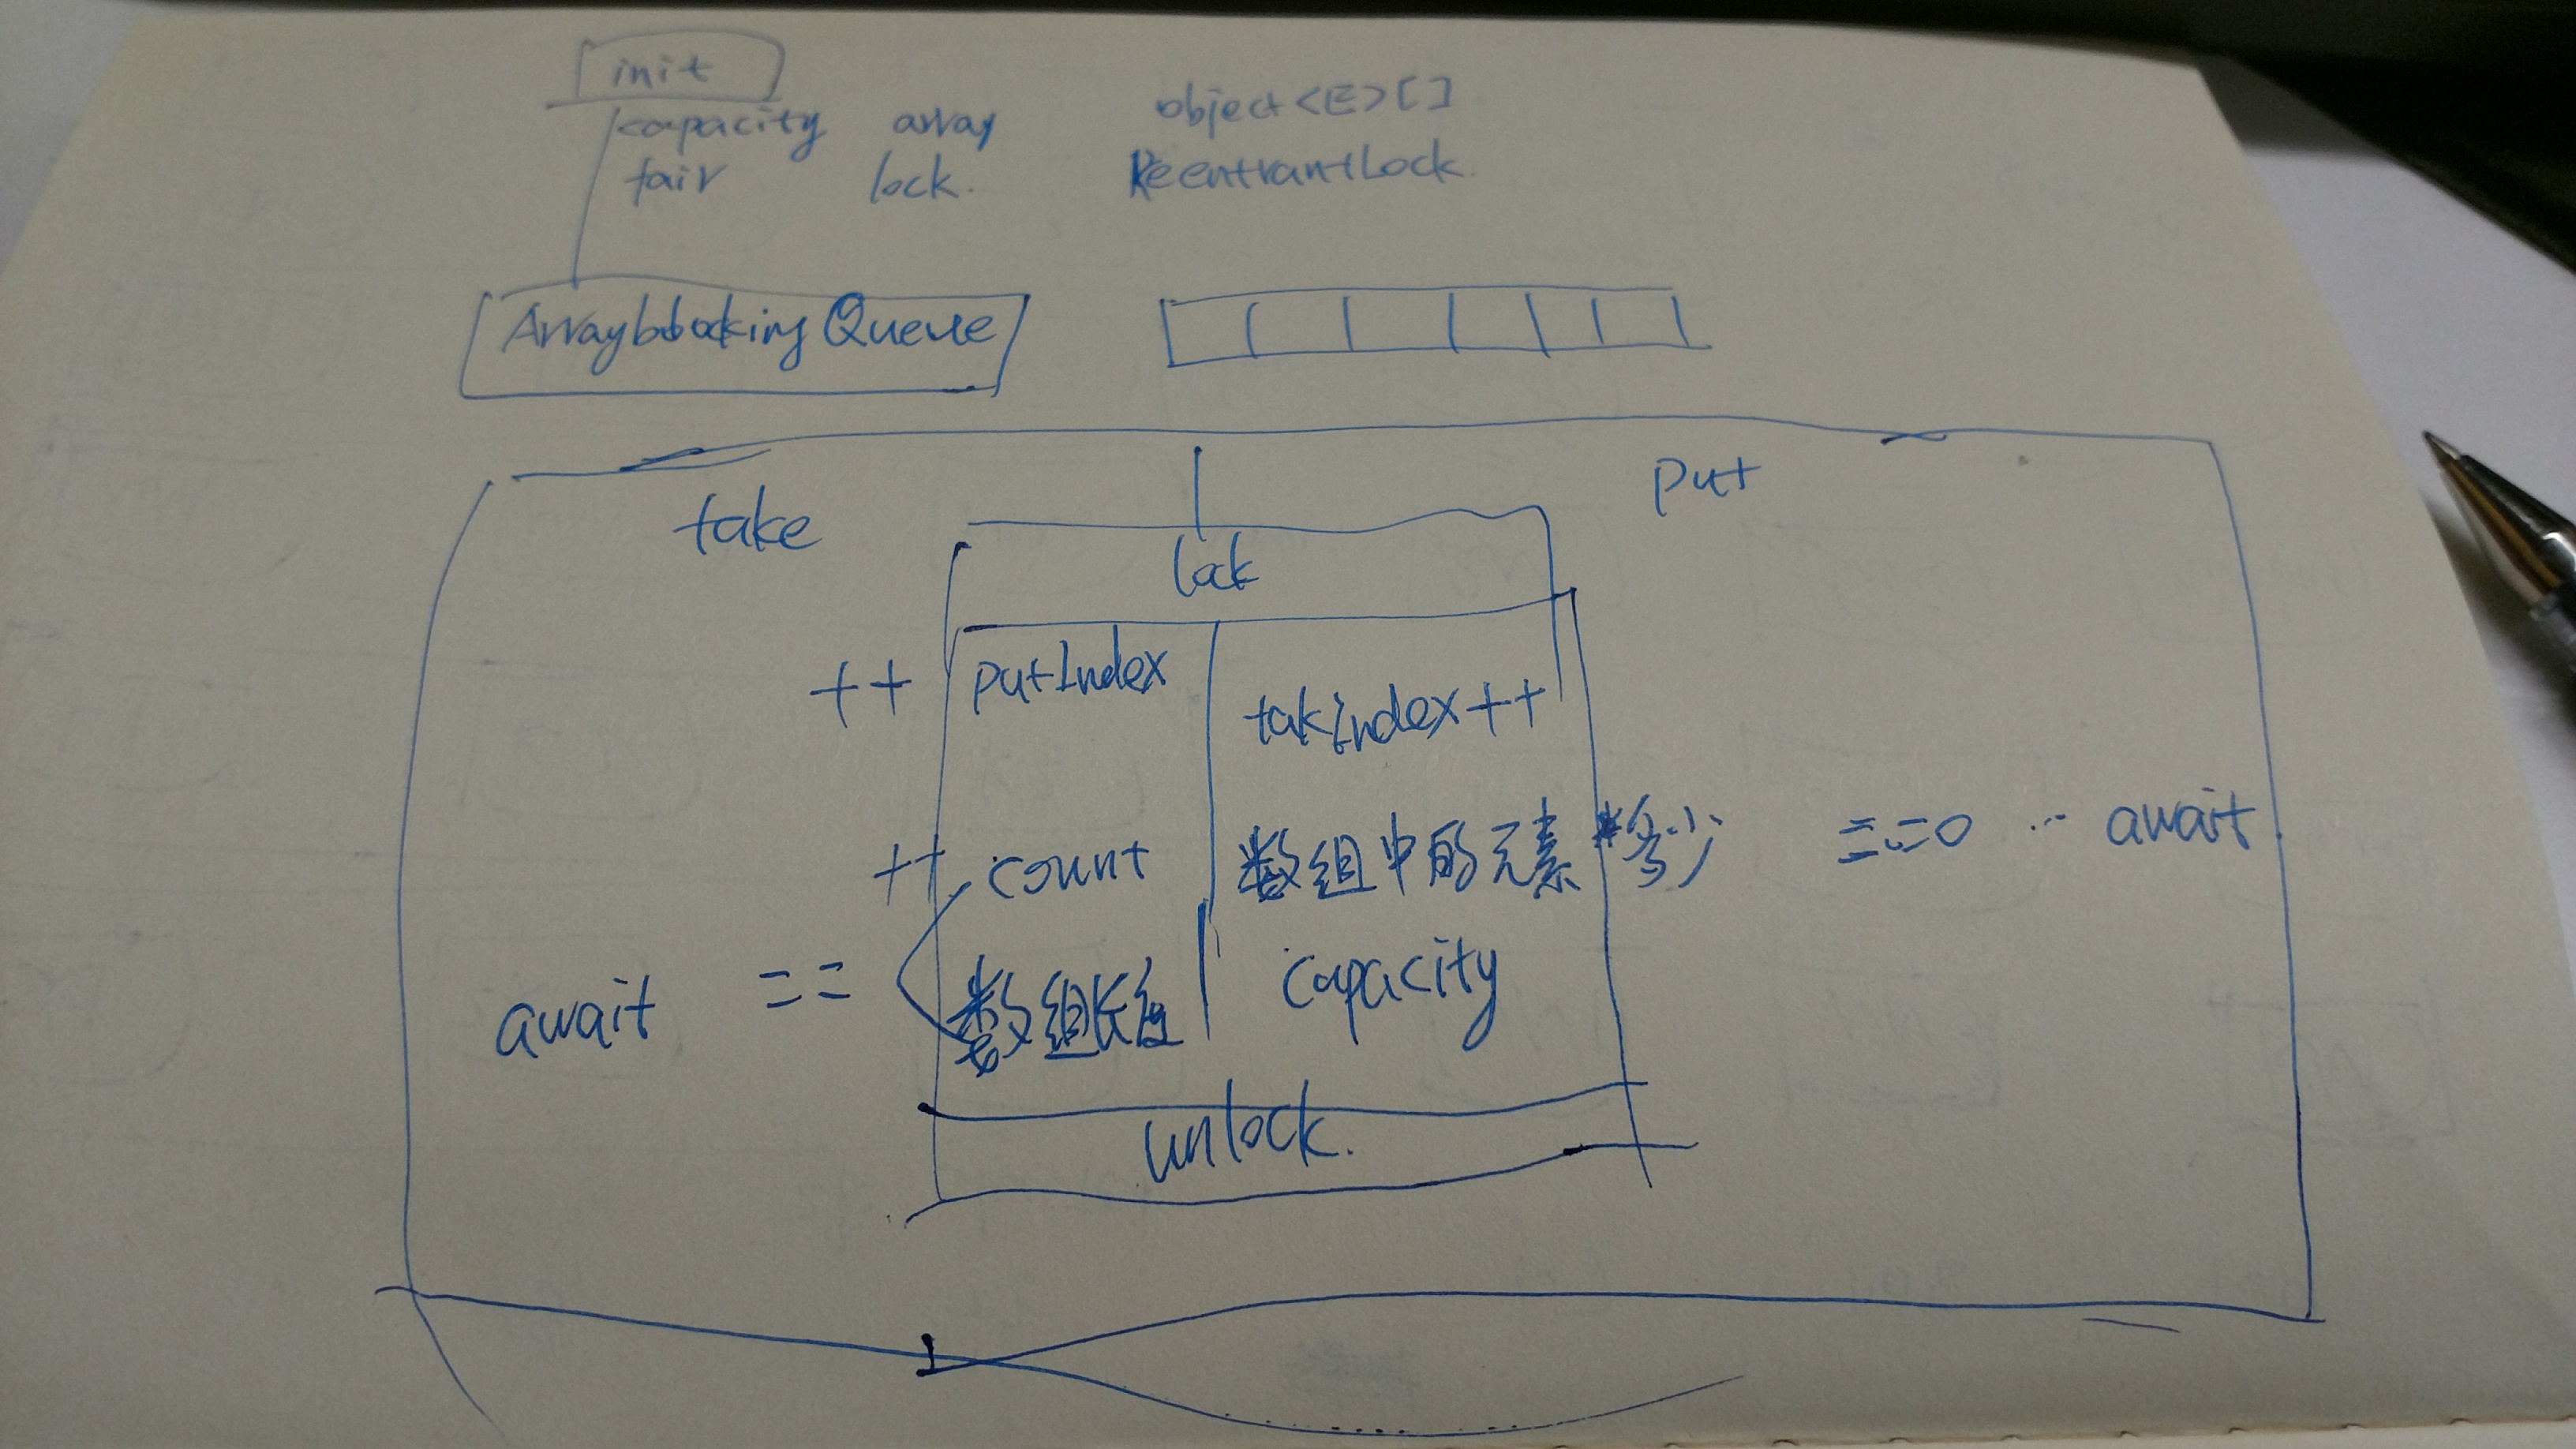 init
capacity array object<E>[]
fair lock. ReentrantLock.
ArraybblockingQueue
take put
lock
++ putIndex takIndex++
++ count 数组中的元素 多少 ==0 ·· await
await == 数组长度 capacity
unlock.